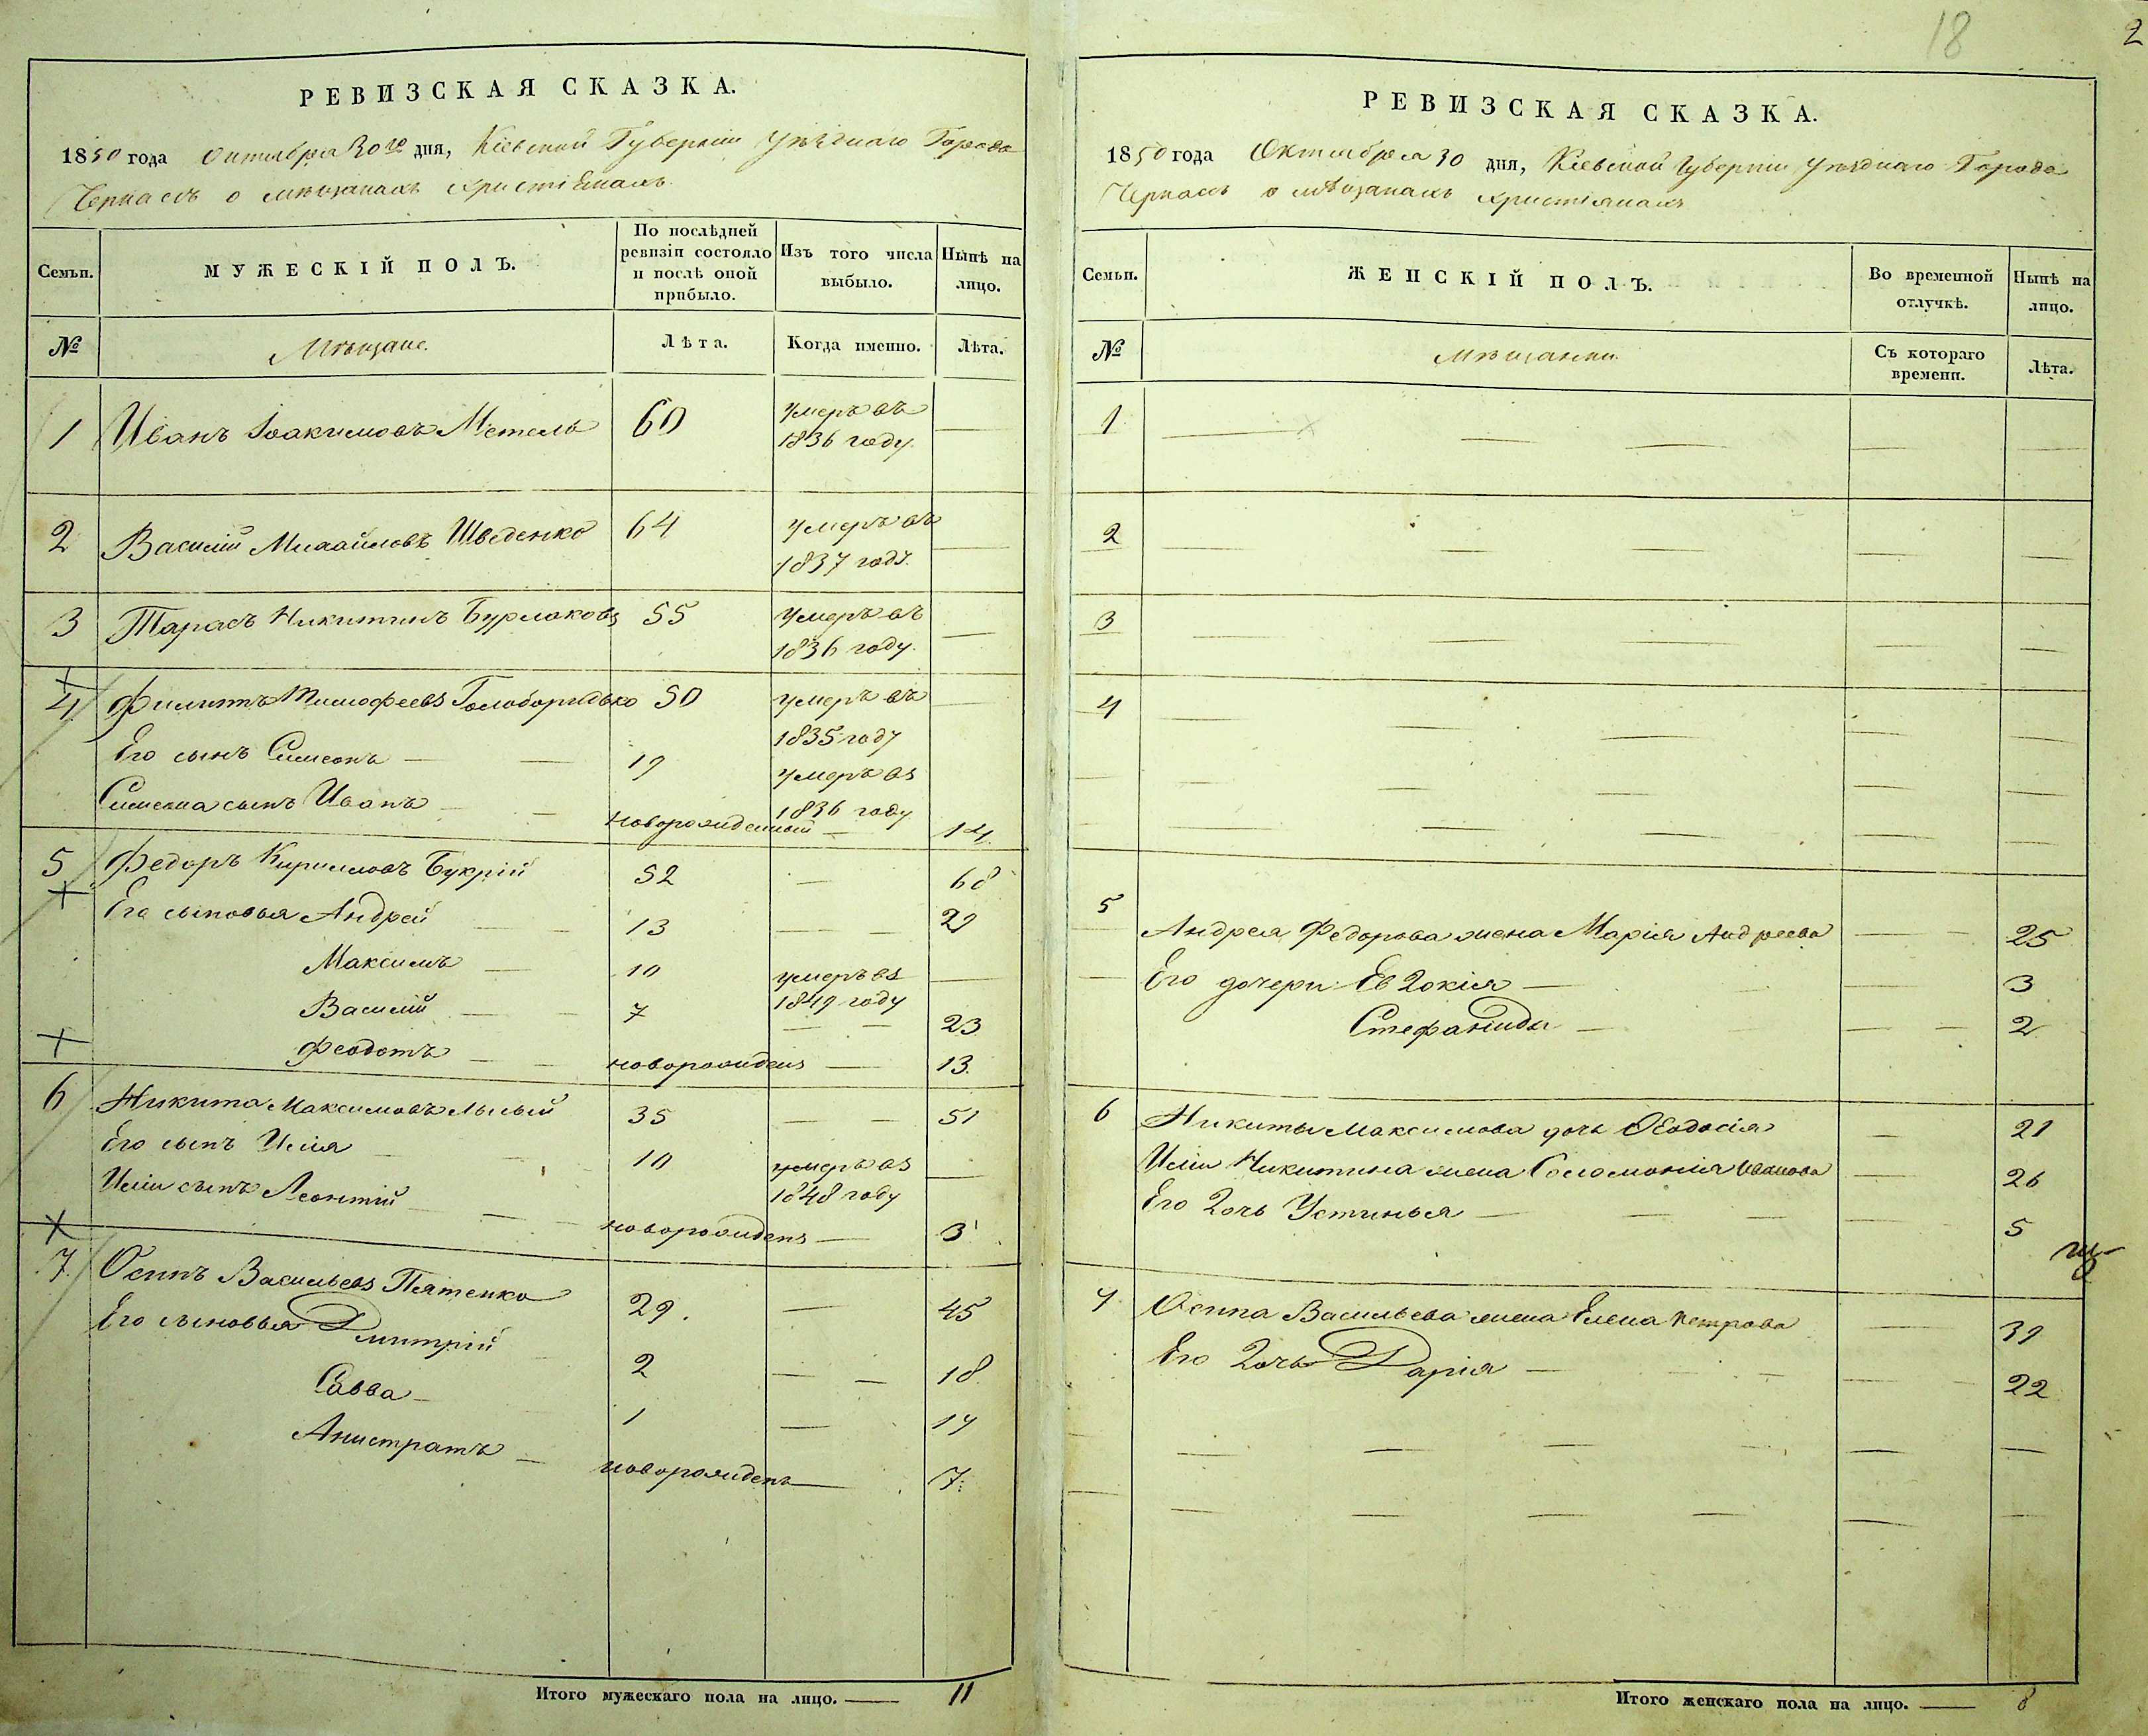 18
2
РЕВИЗСКАЯ СКАЗКА.
1850 года Октября 30го дня, Кіевской Губерніи Уѣзднаго Города
Черкасъ о мѣщанахъ христіянахъ.
Семьи.
МУЖЕСКІЙ ПОЛЪ.
По послѣдней ревизіи состояло и послѣ оной прибыло.
Изъ того числа выбыло.
Нынѣ на лицо.
№
Мѣщане.
Лѣта.
Когда именно.
Лѣта.
1 Иванъ Іоакимовъ Метель 60 умеръ въ 1836 году. —
2 Василій Михайловъ Шведенко 64 умеръ въ 1837 году. —
3 Тарасъ Никитинъ Бурлаковъ 55 умеръ въ 1836 году. —
4 Филиппъ Тимофеевъ Голобородько 50 умеръ въ 1835 году —
Его сынъ Симеонъ — — 19 умеръ въ 1836 году
Симеона сынъ Иванъ — новорожденный — 14
5 Федоръ Кириловъ Букрій 52 — 68
Его сыновья Андрей — 13 — — 29
Максимъ — 10 умеръ въ 1849 году —
Василій — 7 — — 23
Феодотъ — новорожденъ — 13.
6 Никита Максимовъ Лысый 35 — — 51
Его сынъ Илія — 10 умеръ въ 1848 году —
Иліи сынъ Леонтій — новорожденъ — 3
7 Осипъ Васильевъ Пятенко 29. — 45
Его сыновья Дмитрій 2 — — 18
Савва — 1 — 17
Анистратъ — новорожденъ — 7.
Итого мужескаго пола на лицо. — 11
РЕВИЗСКАЯ СКАЗКА.
1850 года Октября 30 дня, Кіевской Губерніи Уѣзднаго Города
Черкасъ о мѣщанахъ христіянахъ
Семьи.
ЖЕНСКІЙ ПОЛЪ.
Во временной отлучкѣ.
Нынѣ на лицо.
№
Мѣщанки.
Съ котораго времени.
Лѣта.
1 — — — — —
2 — — — —
3 — — — — —
4 — — — —
— — — —
— — — —
5
Андрея Федорова жена Марія Андреева — — 25
Его дочери Евдокія — — 3
Стефанида — — — 2
6 Никиты Максимова дочь Феодосія — 21
Иліи Никитина жена Соломонія Иванова — 26
Его дочь Устинья — — — — 5
7 Осипа Васильева жена Елена Петрова — 39
Его дочь Дарія — — 22
— — — — —
— — — — — —
Итого женскаго пола на лицо. — 8